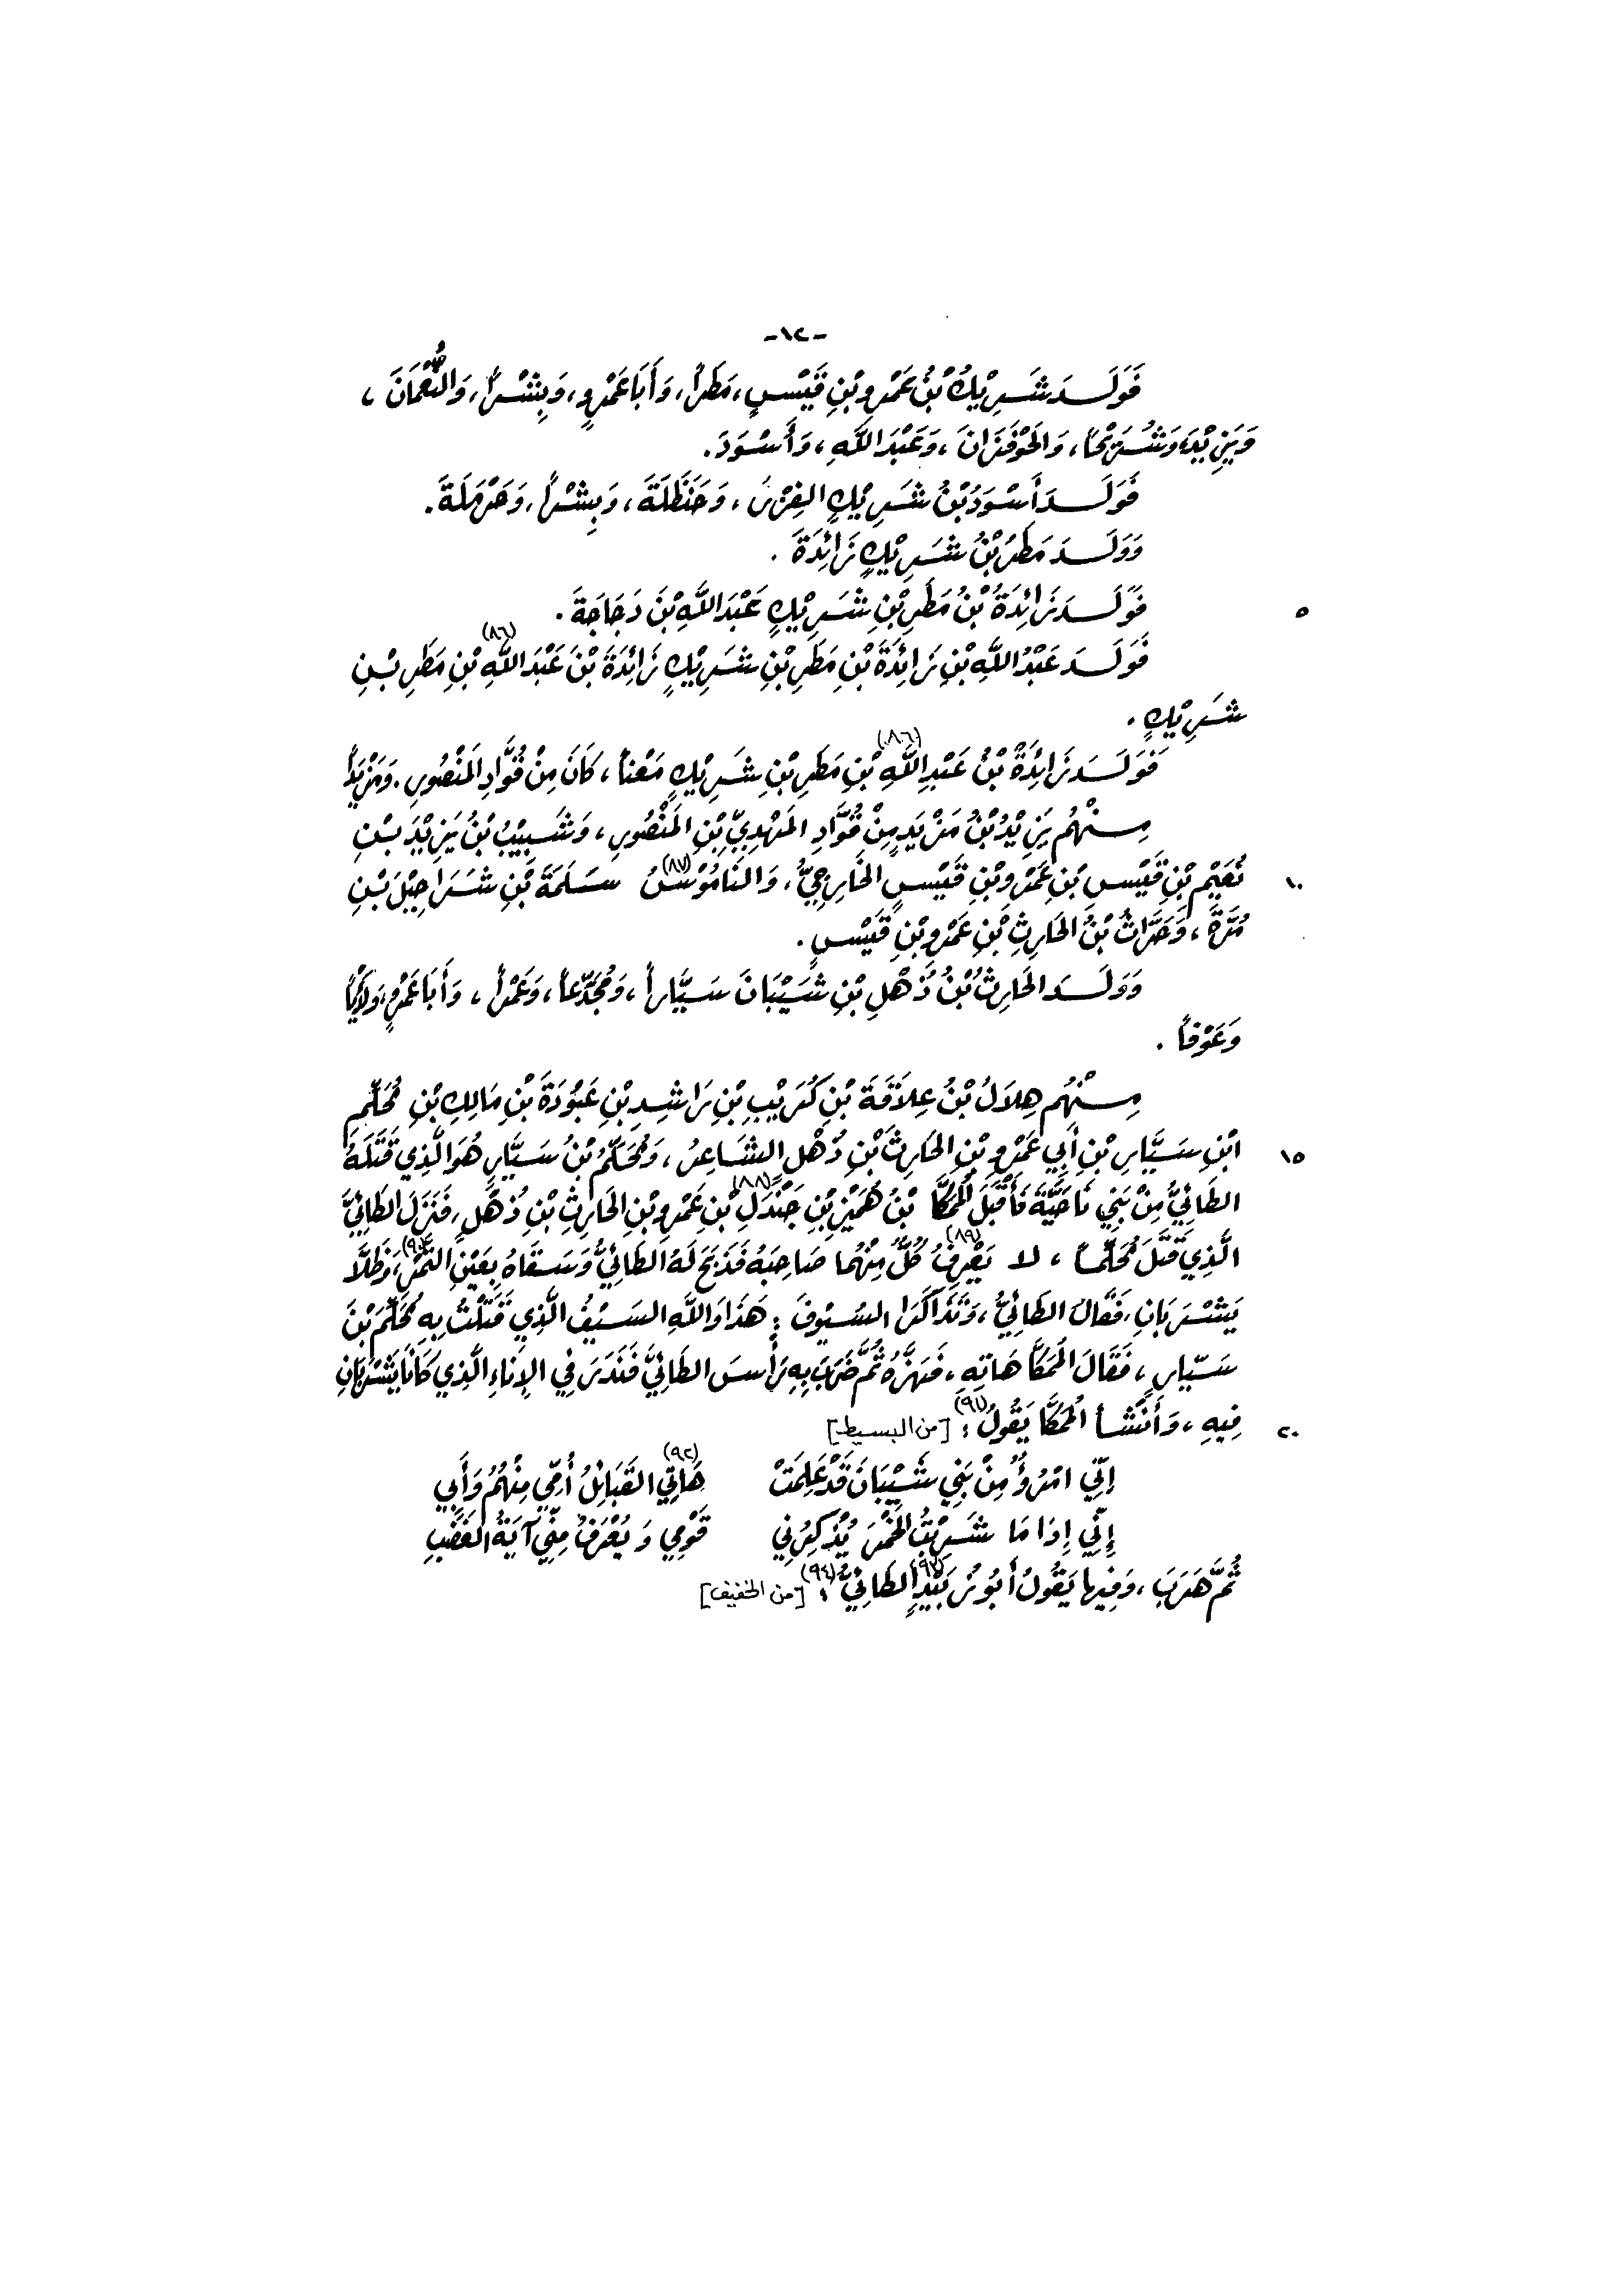 -١٢-
فَوَلَدَ شَرِيْكُ بْنُ عَمْرِو بْنِ قَيْسٍ، مَطَراً، وَأَبَا عَمْرٍو، وَبِشْراً، وَالنُّعْمَانَ،
وَيَزِيْدَ، وَشُرَيْحاً، وَالحَوْفَزَانَ، وَعَبْدَ اللَّهِ، وَأَسْوَدَ.
فَوَلَدَ أَسْوَدُ بْنُ شَرِيْكٍ الفِزْرَ، وَحَنْظَلَةَ، وَبِشْراً، وَحَرْمَلَةَ.
وَوَلَدَ مَطَرُ بْنُ شَرِيْكٍ زَائِدَةَ.
فَوَلَدَ زَائِدَةُ بْنُ مَطَرِ بْنِ شَرِيْكٍ عَبْدَ اللَّهِ بْنَ دَجَاجَةَ. ٥
فَوَلَدَ عَبْدُ اللَّهِ بْنِ زَائِدَةَ بْنِ مَطَرِ بْنِ شَرِيْكٍ زَائِدَةَ بْنَ عَبْدَ اللَّهِ (٨٦) بْنِ مَطَرِ بْنِ
شَرِيْكٍ.
فَوَلَدَ زَائِدَةُ بْنُ عَبْدِ اللَّهِ (٨٦) بْنِ مَطَرِ بْنِ شَرِيْكٍ مَعْناً، كَانَ مِنْ قُوَّادِ المَنْصُورِ. وَمَزْيَداً
مِنْهُم يَزِيْدُ بْنُ مَزْيَدٍ مِنْ قُوَّادِ المَهْدِيِّ بْنِ المَنْصُورِ، وَشَبِيْبُ بْنُ يَزِيْدَ بْنِ
نُعَيْمِ بْنِ قَيْسِ بْنِ عَمْرِو بْنِ قَيْسٍ الخَارِجِيُّ، وَالنَامُوْسُ (٨٧) سَلَمَةَ بْنِ شَرَاحِيْلَ بْنِ ١٠
مُرَّةَ، وَحَرَّاثُ بْنُ الحَارِثِ بْنِ عَمْرِو بْنِ قَيْسٍ.
وَوَلَدَ الحَارِثُ بْنُ ذُهْلِ بْنِ شَيْبَانَ سَيَّاراً، وَمُجَدِّعاً، وَعَمْراً، وَأَبَا عَمْرٍو،
وَعَوْفاً.
مِنْهُم هِلَالُ بْنُ عِلَاقَةَ بْنِ كُرَيْبِ بْنِ رَاشِدِ بْنِ عَبُوْدَةَ بْنِ مَالِكِ بْنِ مُحَلِّمِ
ابْنِ سَيَّارِ بْنِ أَبِي عَمْرِو بْنِ الحَارِثِ بْنِ ذُهْلٍ الشَاعِرُ، وَمُحَلِّمُ بْنُ سَيَّارٍ هُوَ الَّذِي قَتَلَهُ ١٥
الطَائِيُّ مِنْ بَنِي نَاحِيَّةَ فَأَقْبَلَ المُكَّا بْنُ هُمَيْزِ بْنِ جَنْدَلِ (٨٨) بْنِ عَمْرِو بْنِ الحَارِثِ بْنِ ذُهْلٍ، فَنَزَلَ الطَائِيَّ
الَّذِي قَتَلَ مُحَلِّماً، لا يَعْرِفُ (٨٩) كُلٌّ مِنْهُمَا صَاحِبَهُ فَذَبَحَ لَهُ الطَائِيُّ وَسَقَاهُ بِعَيْنِ التَّمْرِ (٩٠)، وَظَلَّا
يَشْرَبَانِ، فَقَالَ الطَائِيُّ، وَتَذَاكَرَا السُيُوفَ: هَذَا وَاللَّهِ السَيْفُ الَّذِي قَتَلْتُ بِهِ مُحَلِّمَ بْنَ
سَيَّارٍ، فَقَالَ المُكَّا هَاتِهِ، فَهَزَّهُ ثُمَّ ضَرَبَ بِهِ رَأْسَ الطَائِيِّ فَنَدَرَ فِي الإِنَاءِ الَّذِي كَانَا يَشْرَبَانِ
فِيهِ، وَأَنْشَأَ المُكَّا يَقُولُ (٩١): [من البسيط] ٢٠
إِنِّي امْرُؤٌ مِنْ بَنِي شَيْبَانَ قَدْ عَلِمَتْ هَاتِي (٩٢) القَبَائِلُ أُمِّي مِنْهُمُ وَأَبِي
إِنِّي إِذَا مَا شَرِبْتُ الخَمْرَ يُذْكِرُنِي قَوْمِي وَيُعْرَفُ مِنِّي آيَةُ الغَضَبِ
ثُمَّ هَرَبَ، وَفِيهَا يَقُولُ أَبُو زُبَيْدٍ (٩٣) الطَائِيُّ (٩٤): [من الخفيف]